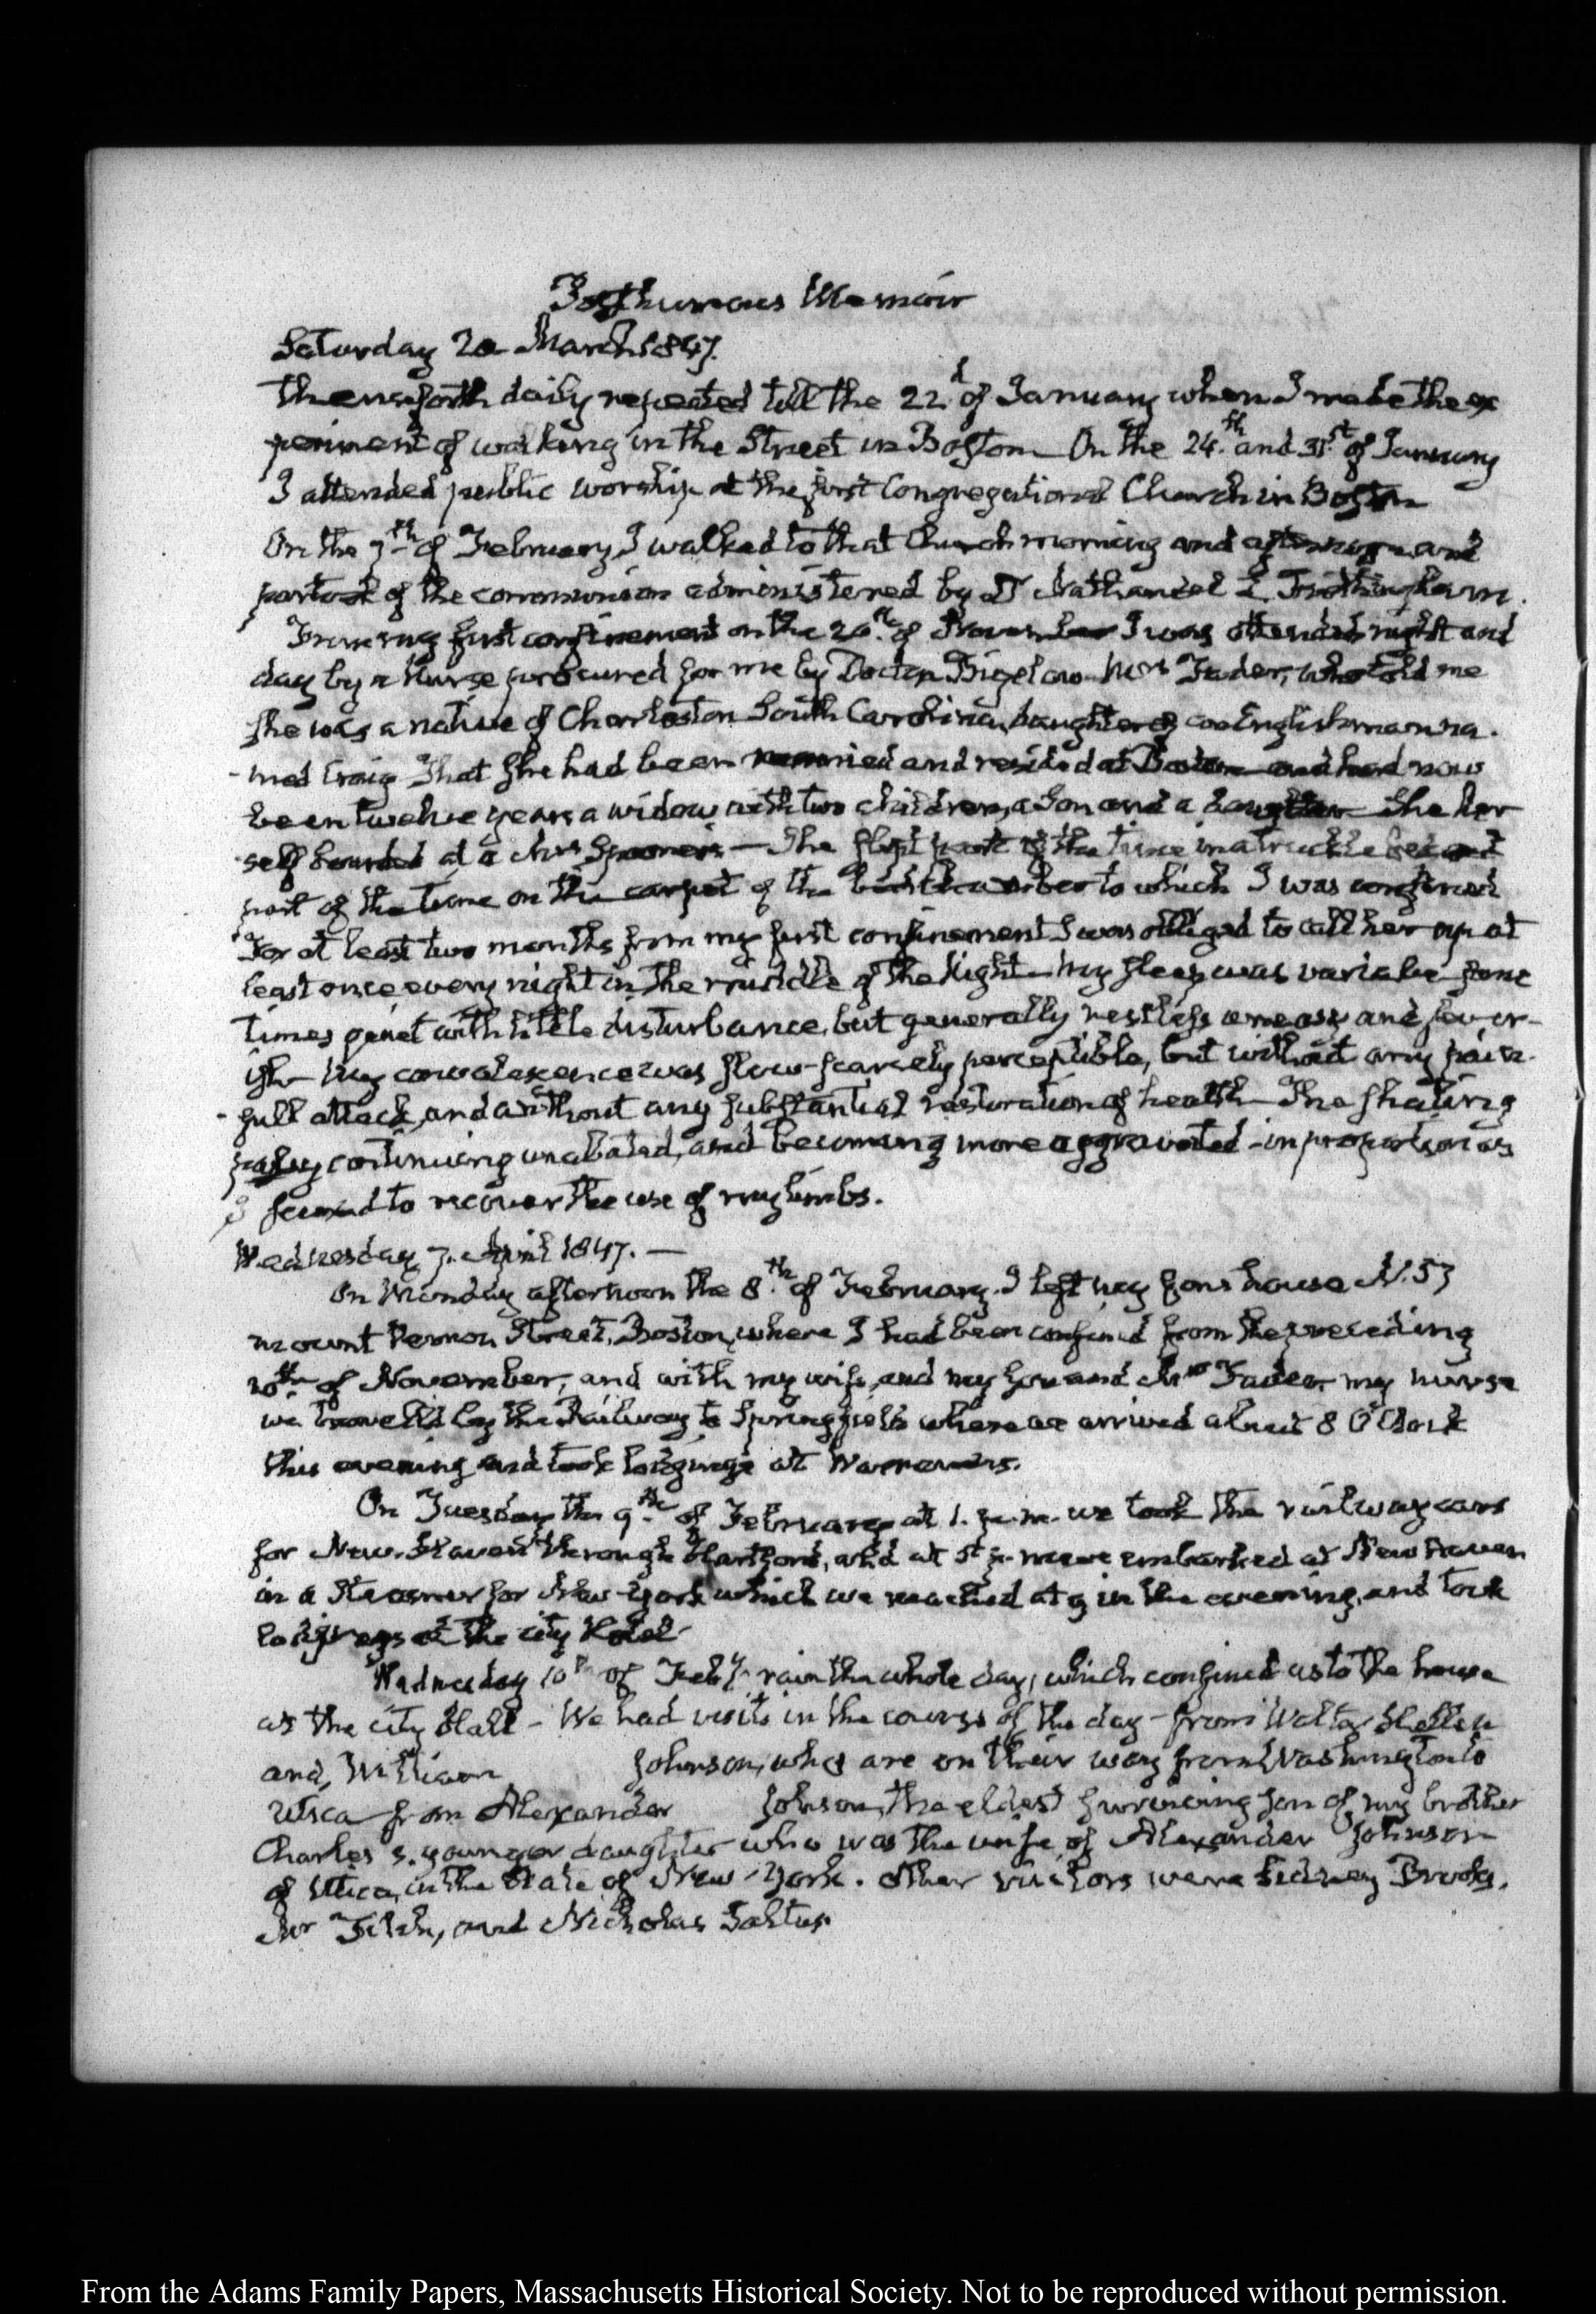 Posthumous Memoir
Saturday 20 March 1847.
Thenceforth daily repeated till the 22d of January when I made the ex
periment of walking in the Street in Boston— On the 24.th and 31.st of January
I attended public worship at the first Congregational Church in Boston
On the 7th of February I walked to that Church morning and afternoon and
partook of the communion administered by Dr Nathaniel L. Frothingham.
From my first confinement on the 20th of November I was attended night and
day by a Nurse procured for me by Doctor Bigelow Mrs Fader, who told me
she was a native of Charleston South Carolina, daughter of an Englishman na-
-med Craig That she had been married and resided at Boston and had now
been twelve years a widow with two children, a Son and a daughter She her
self boarded at a Mrs Spooner's — She slept part of the time in a truckle bed and
part of the time on the carpet of the bedchamber to which I was confined
For at least two months from my first confinement I was obliged to call her up at
least once every night in the middle of the Night— My sleep was variable some
times quiet with little disturbance, but generally restless uneasy and fever-
ish— My convalescence was slow—scarcely perceptible, but without any pain-
-full attack, and without any substantial restoration of health— The shaking
palsy continuing unabated, and becoming more aggravated - in proportion as
I seemed to recover the use of my limbs.
Wednesday 7. April 1847. —
On Monday afternoon the 8.th of February. I left my sons house N. 57
mount Vernon Street, Boston, where I had been confined from the preceding
20th of November, and with my wife, and my son and Mrs Fader my nurse
we travelled by the Railway to Springfield where we arrived about 8 O'Clock
this evening and took lodgings at Warriner's.
On Tuesday the 9.th of February at 1. p.m. we took the railway cars
for New-Haven through Hartford, and at 5 p.m. we embarked at New Haven
in a Steamer for New-York which we reached at 9 in the evening, and took
lodgings at the city Hotel
Wednesday 10th of Feby. rain the whole day, which confined us to the house
at the city Hall - We had visits in the course of the day - from Walter Hellen
and, William Johnson, who are on their way from Washington to
Utica from Alexander Johnson, the eldest surviving son of my brother
Charles's younger daughter who was the wife of Alexander Johnson
of Utica, in the State of New-York. Other visitors were Sidney Brooks,
Mr Fitch, and Nicholas Saltus
From the Adams Family Papers, Massachusetts Historical Society. Not to be reproduced without permission.